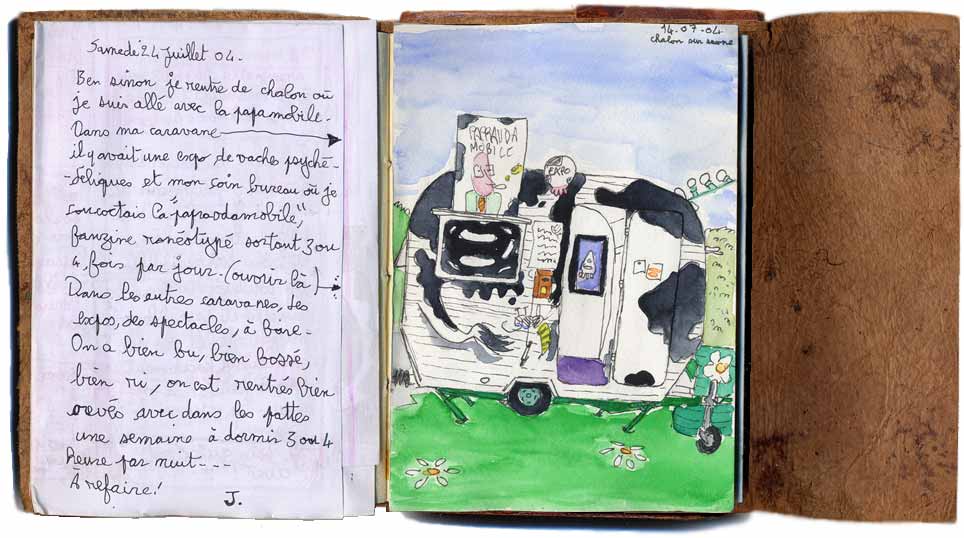 Samedi 24 Juillet 04.
Ben sinon je rentre de chalon où
je suis allé avec la papamobile.
Dans ma caravane
il y avait une expo de vaches psyché-
-déliques et mon soin bureau où je
concoctais la "papaoodamobile",
fanzine ronéotypé sortant 3 ou
4 fois par jour. (ouvrir là)
Dans les autres caravanes, des
expos, des spectacles, à boire.
On a bien bu, bien bossé,
bien ri, on est rentrés bien
crevés avec dans les pattes
une semaine à dormir 3 ou 4
heure par nuit...
A refaire!
J.
14.07.04
chalon sur saone
MOBILE
EXPO